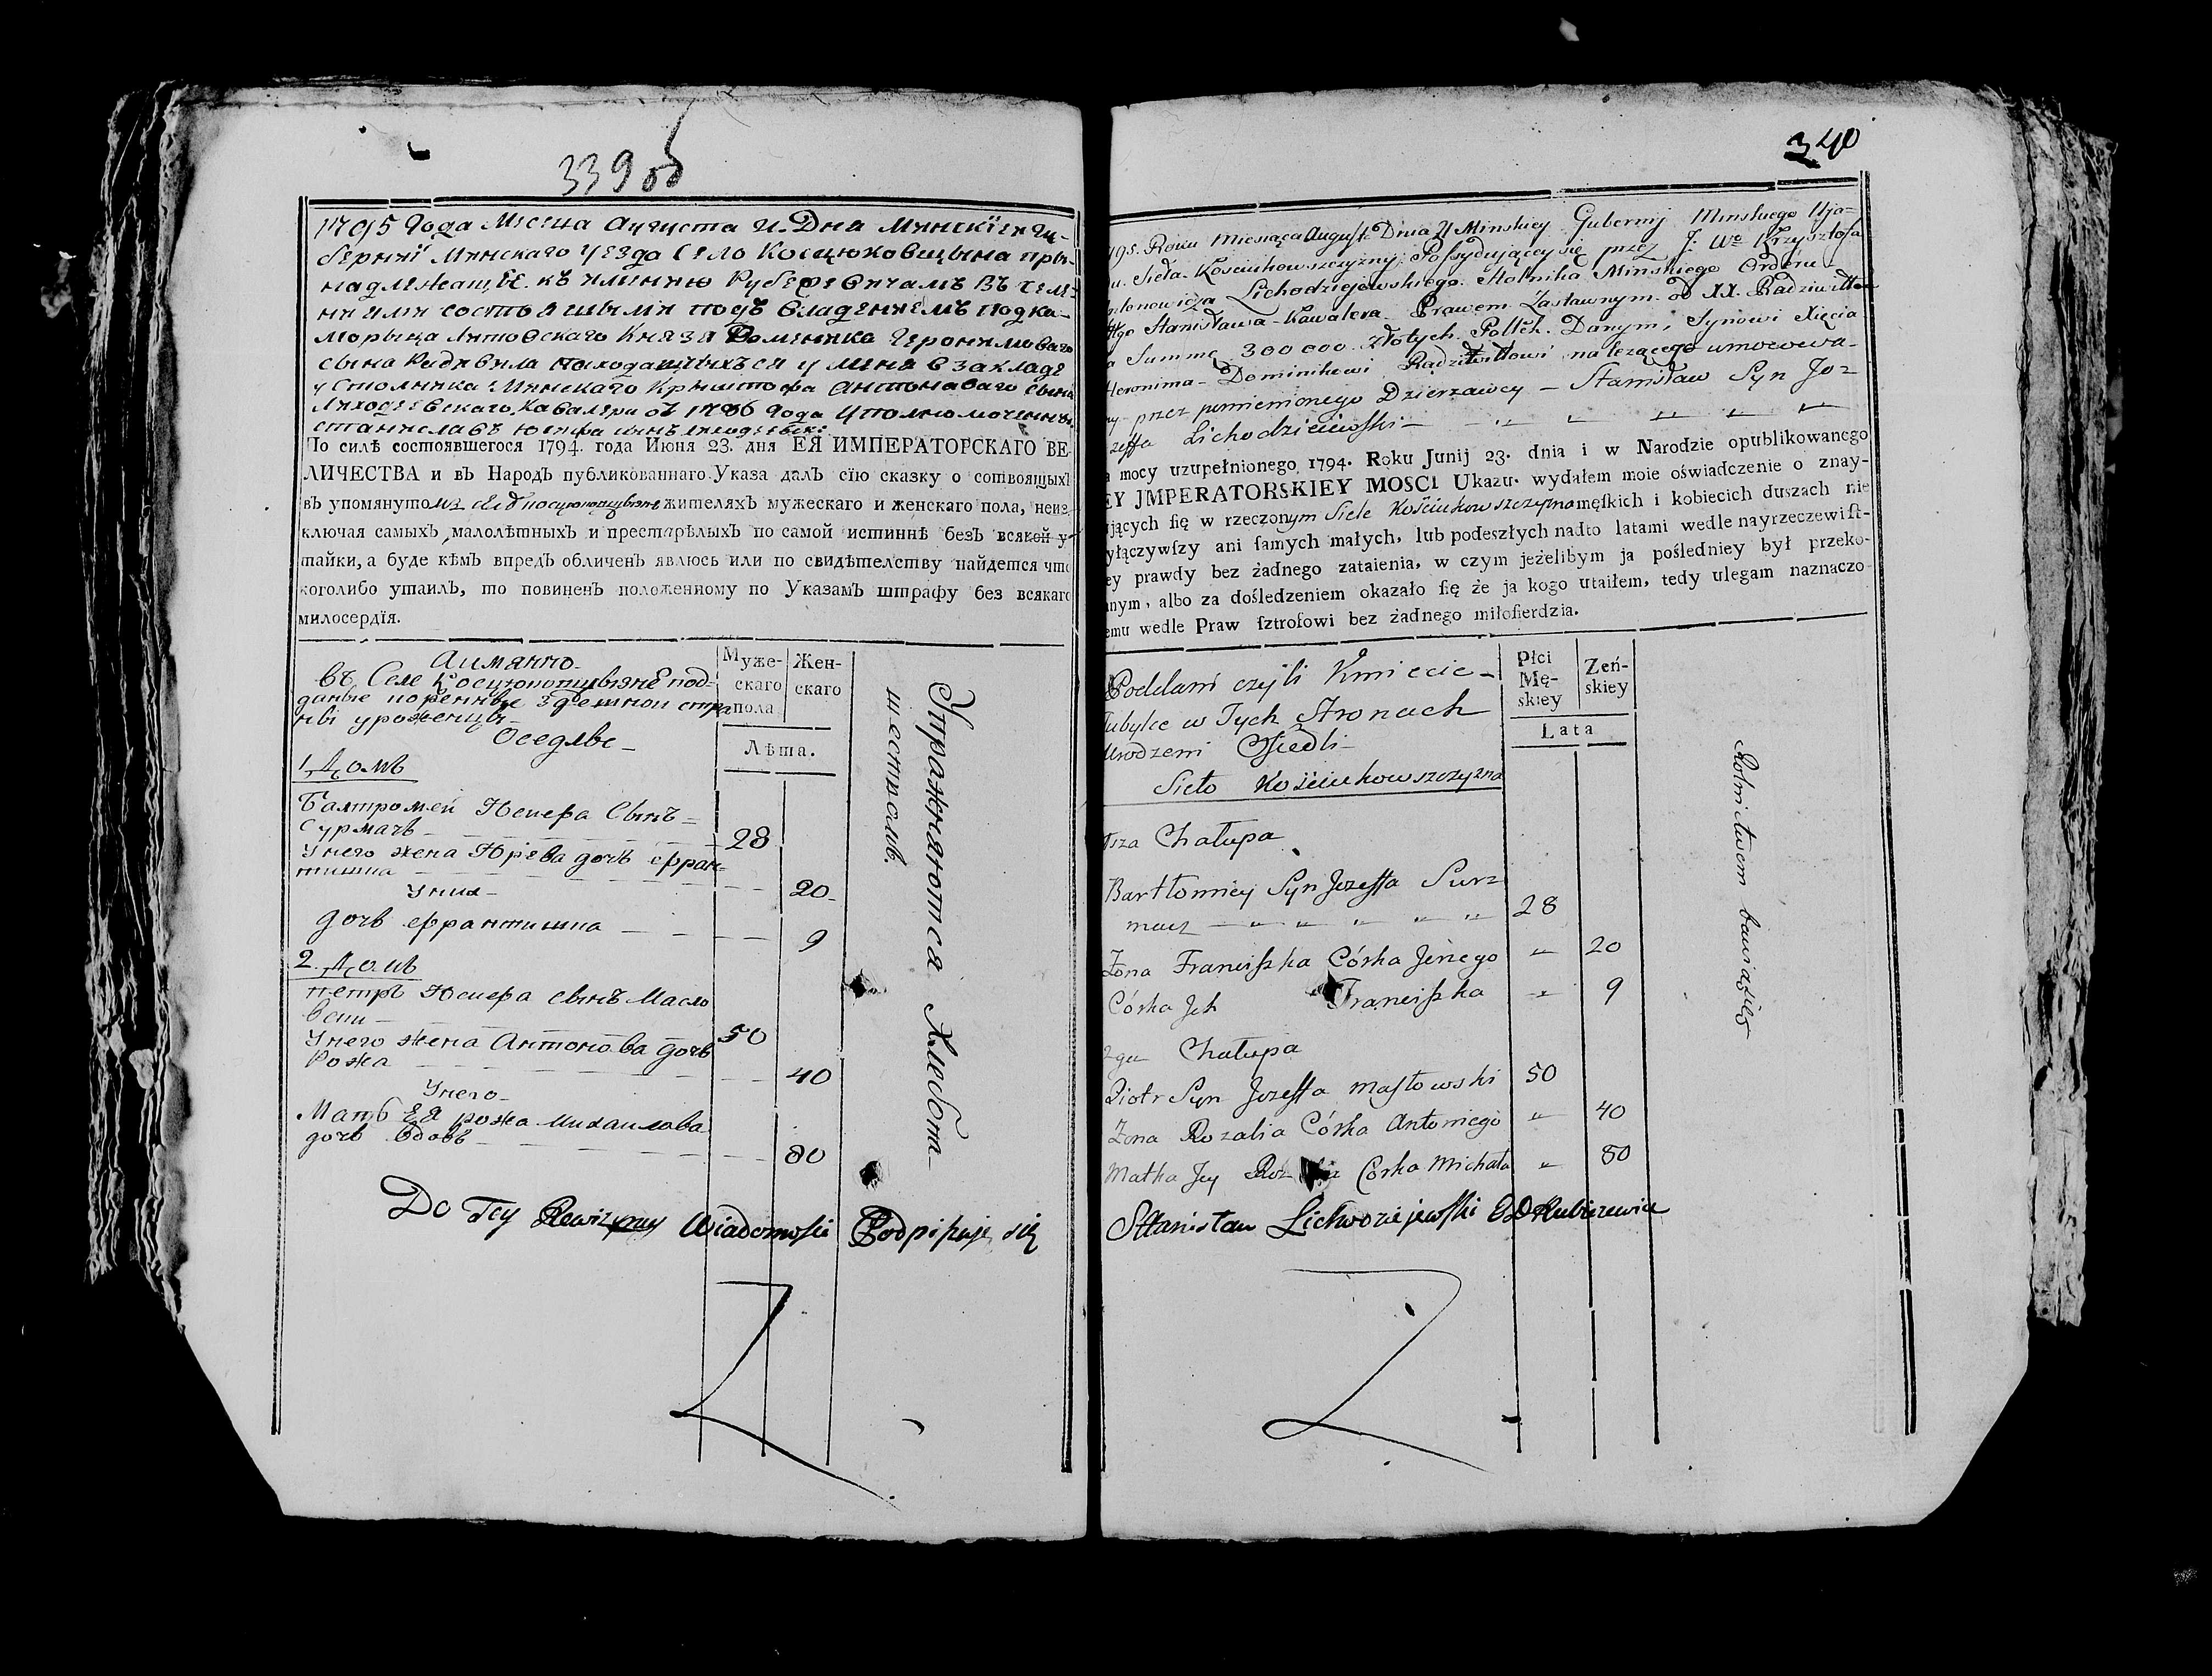 339 об
1795 Года Месеца Августа 21 Дня Минскiея Гу-
бернiй Минскаго Уезда Село Косцюковщына при-
надлежащые къ имѣнию Рубежевичамъ въ
подъ владениемъ подка-
морыца Литовскаго Князя Доменика Геронимоваго
сына Радивила находащыхъся у меня в закладе
у Столника Минскаго Крыштофа Антоноваго сына
Лиходзеевскаго, Кавалера от 1786 Года Уполномоченный
станиславъ Юзефа сынъ
По силѣ состоявшегося 1794. года Июня 23. дня ЕЯ ИМПЕРАТОРСКАГО ВЕ-
ЛИЧЕСТВА и въ Народъ публикованнаго Указа далъ сїю сказку о состоящыхъ
въ упомянутомъ жителяхъ мужескаго и женскаго пола, неиз-
ключая самыхъ малолѣтныхъ и престарѣлыхъ по самой истиннѣ безъ всякой у-
тайки, а буде кѣмъ впредъ обличенъ явлюсь или по свидѣтелству найдется что
коголибо утаилъ, то повиненъ положенному по Указамъ штрафу без всякаго
милосердїя.
Аимянно
въ Селе под-
даные коренные здешной стра-
ны уроженцы
Оседлые
Муже-
скаго
пола
Жен-
скаго
Лѣта.
1. Домъ
Балтромей Юзефа Сынъ
Сурмачъ 28
У него жена Юрева дочь ефран-
тишка 20
У них
дочь ефрантишка 9
2. Домъ
петръ Юзефа сынъ Масло
вски 50
У него жена Антонова дочь
Рожа 40
У него
Мать Ея рожа михаилова
дочь вдова 80
Упражняютса Хлебопа-
шеством.
Do Tey Rewizyney Wiadomości Podpisuję się
340
1795. Roku Miesiąca August Dnia 21 Minskiey Gubernij Minskiego Uja-
zdu. Sieła Kosciukowszczyzny, Possydującey się przez J. Wo Krzysztofa
Antonowicza Lichodziejewskiego Stolnika Minskiego Orderu
Stgo Stanisława Kawalera Prawem Zastawnym od XX. Radziwiłłow
w Summę 300000 złotych Polsk. Danym, Synowi Xięcia
Heronima Dominikowi Radziwiłłowi należącego umocowa-
ny przez pomienionego Dzierzawcy Stanisław Syn Jo-
zeffa Lichodzieiewski
a mocy uzupełnionego 1794. Roku Junij 23. dnia i w Narodzie opublikowanego
EY JMPERATORSKIEY MOSCI Ukazu. wydałem moie oświadczenie o znay-
ujących ſię w rzeczonym Siele Kościukowszczyzna męſkich i kobiecich duszach nie
yłączywſzy ani ſamych małych, lub podeszłych nadto latami wedle nayrzeczewiſt-
ey prawdy bez żadnego zataienia, w czym jeżelibym ja pośledniey był przeko-
nym, albo za dośledzeniem okazało ſię że ja kogo utaiłem, tedy ulegam naznaczo-
emu wedle Praw ſztrofowi bez żadnego miłoſierdzia.
Poddani czyli Kmiecie
Tubylce w Tych Stronach
Urodzeni Osiedli
Sieło Kościukowszczyzna
Płci
Mę-
skiey
Zeń-
skiey
Lata
1sza Chałupa
Bartłomiey Syn Jozeffa Sur-
macz 28
Zona Franciszka Córka Jerzego 20
Córka Jch Franciszka 9
2ga Chałupa
Piotr Syn Jozeffa Masłowski 50
Zona Rozalia Córka Antoniego 40
Matka Jey Rozalia Corka Michała 80
Rolnictwem bawią się
Stanisław Lichodziejewski